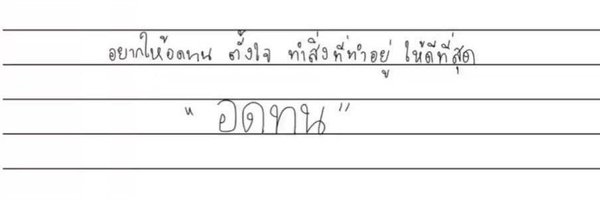 อยากให้อดทน ตั้งใจ ทำสิ่งที่ทำอยู่ ให้ดีที่สุด
"อดทน"